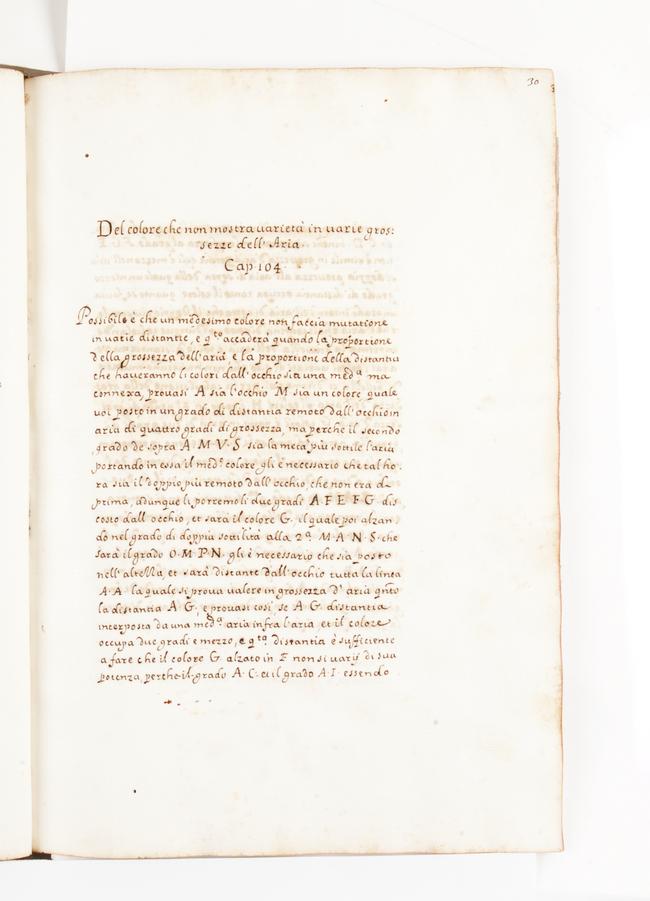 30
Del colore che non mostra varietà in varie gros:
sezze dell' Aria.
Cap 104.
Possibile è che un medesimo colore non faccia mutatione
in varie distantie, e q.to accaderà quando la proportione
della grossezza dell'aria e la proportione della distantia
che haveranno li colori dall'occhio sia una med.a ma
connexa, provasi A sia l'occhio M sia un colore quale
voi posto in un grado di distantia remoto dall'occhio in
aria di quattro gradi di grossezza, ma perche il secondo
grado de sopra A.M.V.S. sia la metà più sottile l'aria
portando in essa il med.o colore, gli è necessario che tal ho:
ra sia il doppio più remoto dall'occhio, che non era da
prima, adunque li porremo li due gradi A F E F G dis
costo dall'occhio, et sarà il colore G. il quale poi alzan
do nel grado di doppia sottilità alla 2.a M.A.N.S. che
sarà il grado O.M.P.N. gli è necessario che sia posto
nell'altezza, et sarà distante dall'occhio tutta la linea
A.A. la quale si prova valere in grossezza d'aria q.nto
la distantia A G, e provasi così, se A G distantia
interposta da una med.a aria infra l'aria, et il colore
occupa due gradi e mezzo, e q.ta distantia è sufficiente
a fare che il colore G alzato in F non si varij di sua
potenza, perche il grado A.C. et il grado A I. essendo